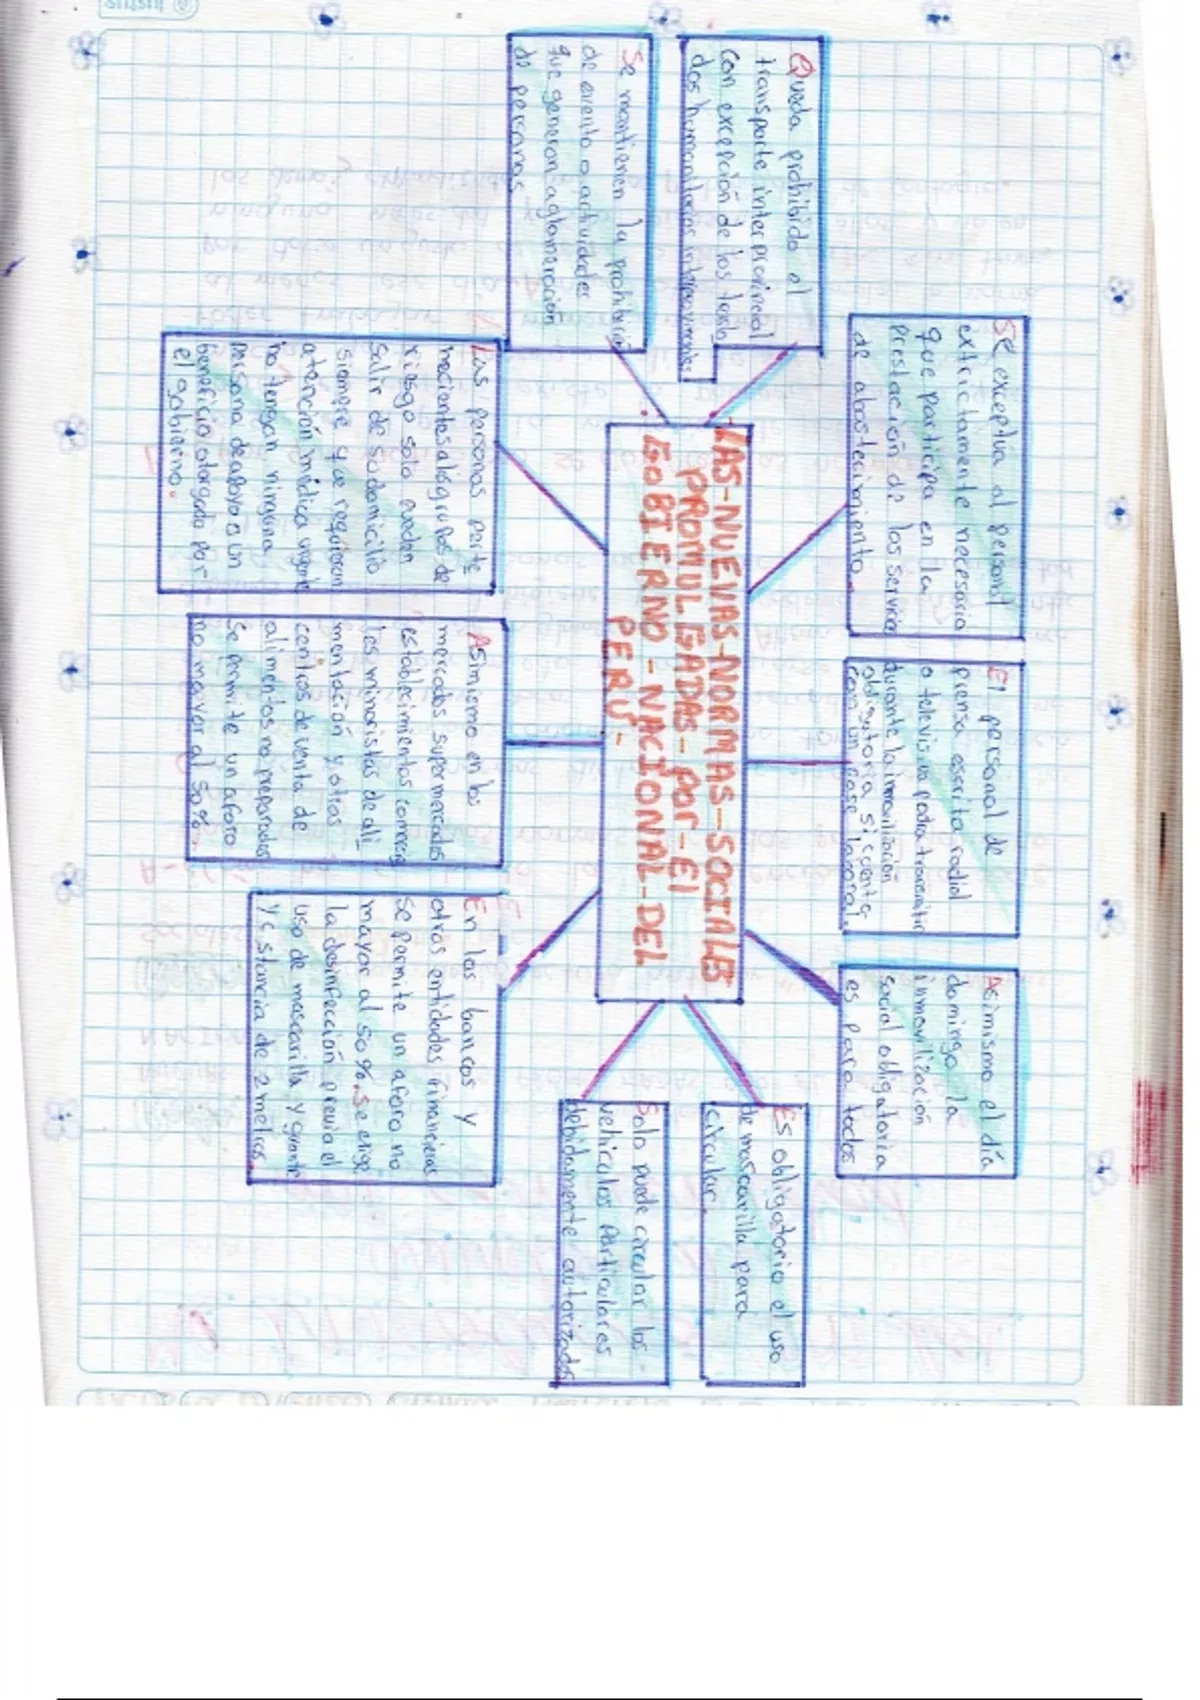 LAS-NUEVAS-NORMAS-SOCIALES
PROMULGADAS-POR-El
GOBIERNO-NACIONAL-DEL
PERÚ-
Se exceptúa al personal
extrictamente necesario
que participa en la
prestación de los servicio
de abastecimiento.
El personal de
prensa escrita radial
o televisiva podra transmitir
durante la inmovilización
obligatoria si cuenta
con un pase laboral.
Asimismo el día
domingo la
inmovilización
social obligatoria
es para todos
Queda prohibido el
transporte interprovincial
con excepción de los trasla
dos humanitarios interprovinciales
Es obligatorio el uso
de mascarilla para
circular.
Se mantienen la prohibición
de evento o actividades
que generan aglomeración
de personas
Solo puede circular los
vehiculos particulares
debidamente autorizados
Las personas perte
necientes a los grupos de
riesgo solo pueden
Salir de su domicilio
siempre y que requieran
atención médica urgente
no tengan ninguna
persona de apoyo o un
beneficio otorgado por
el gobierno.
Asimismo en los
mercados supermercados
establecimientos comercia
les minoristas de ali
mentación y otros
centros de venta de
alimentos no preparados
Se permite un aforo
no mayor al 50%.
En los bancos y
otras entidades financieras
se permite un aforo no
mayor al 50%. Se exige
la desinfección previa el
uso de mascarilla y guante
y distancia de 2 metros.